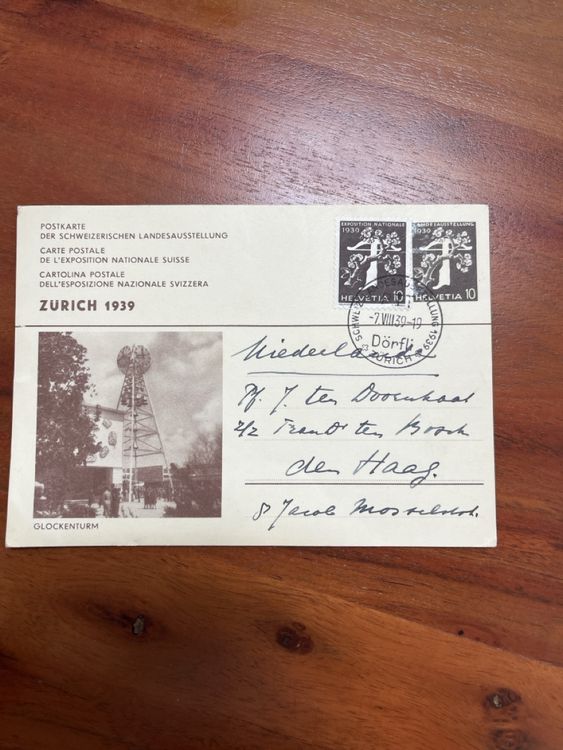 POSTKARTE
DER SCHWEIZERISCHEN LANDESAUSSTELLUNG
CARTE POSTALE
DE L'EXPOSITION NATIONALE SUISSE
CARTOLINA POSTALE
DELL'ESPOSIZIONE NAZIONALE SVIZZERA
ZÜRICH 1939
EXPOSITION NATIONALE
1939
HELVETIA 10
LANDESAUSSTELLUNG
1939
HELVETIA 10
SCHWEIZ. LANDESAUSSTELLUNG 1939
-7.VIII.39-19
Dörfli
ZÜRICH
Niederlande
J. ten Doornkaat
ten Bosch
den Haag.
8 Jacob
GLOCKENTURM